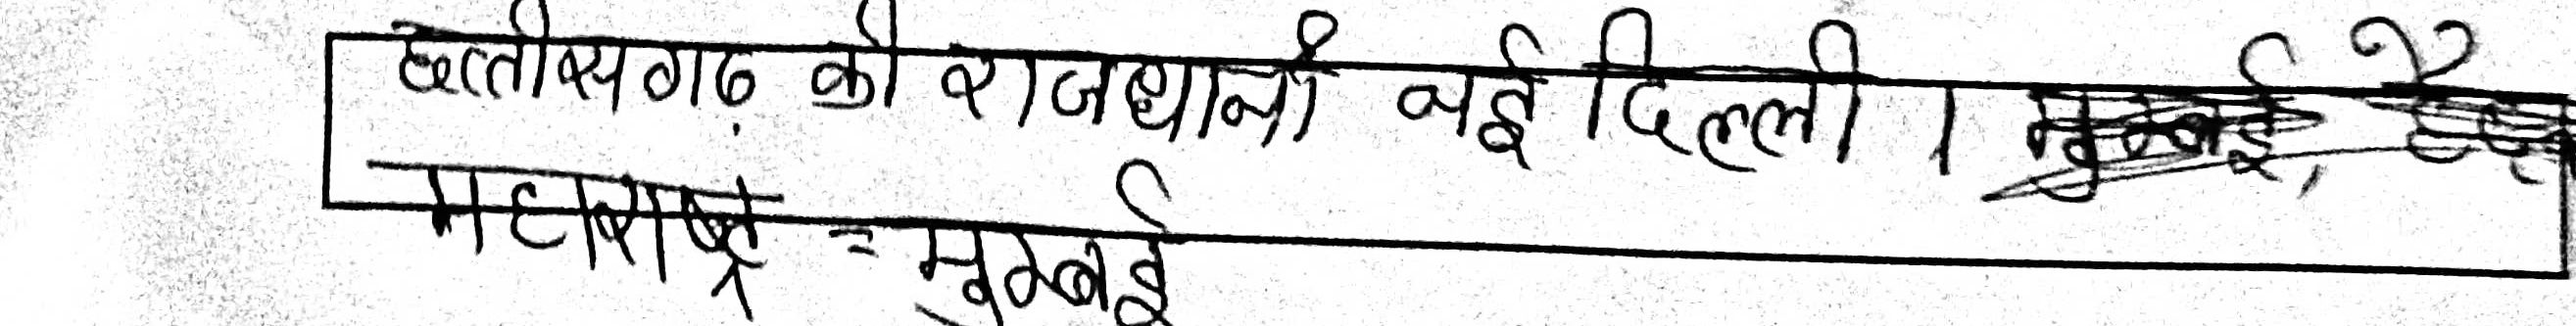 छत्तीसगढ़ की राजधानी नई दिल्ली ।
महाराष्ट्र = मुम्बई